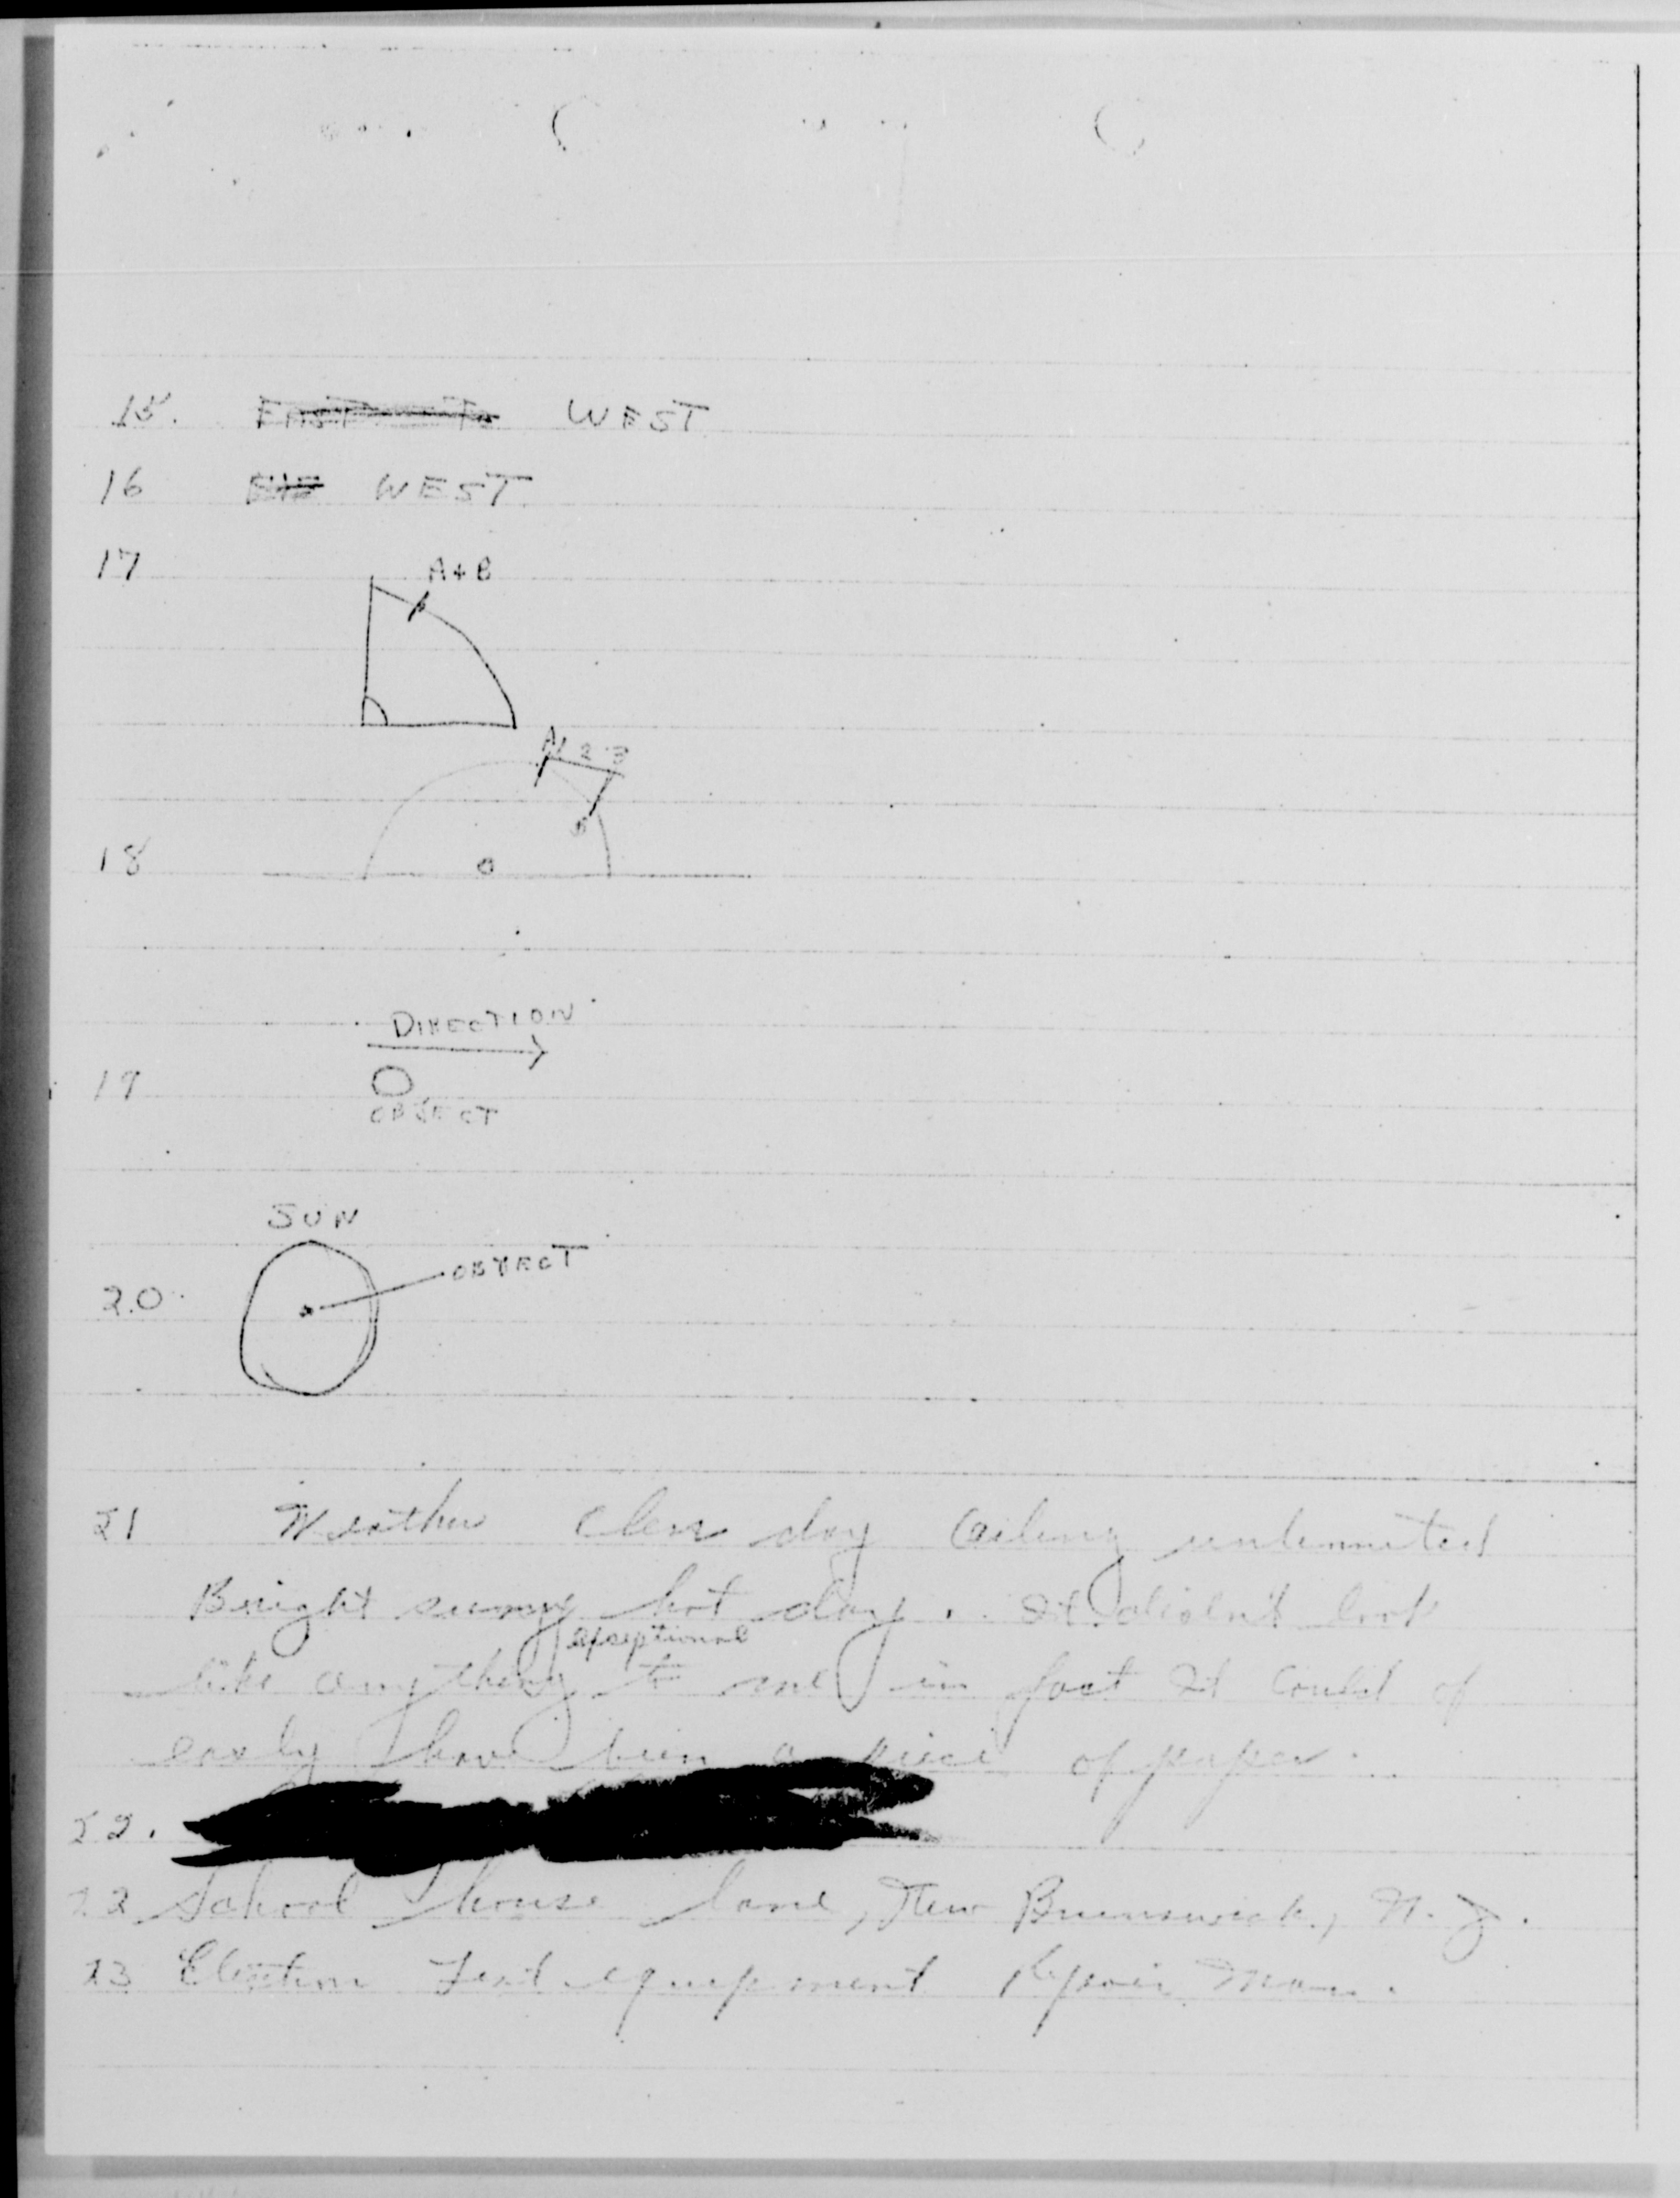 15. EAST To WEST
16 WEST
17 A+B
A 1 2 3
B
18
DIRECTION
19
OBJECT
SUN
OBJECT
20.
21 Weather Clear day Ceiling unlimmited
Bright sunny hot day. It didn't look
like anything to me in fact It could of
easly have bien a piece of paper.
22.
22 School house lane, New Brunswick, N.J.
23 Electron Test equipment Repair Man.